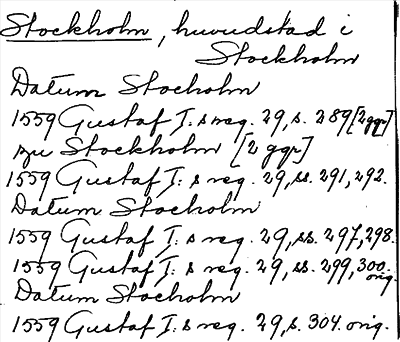 Stockholm, huvudstad i
Stockholm
Datum Stocholm
1559 Gustaf I:s reg. 29, s. 289 [2 ggr]
zu Stockholm [2 ggr]
1559 Gustaf I:s reg. 29, ss. 291, 292.
Datum Stocholm
1559 Gustaf I:s reg. 29, ss. 297, 298.
1559 Gustaf I:s reg. 29, ss. 299, 300. orig.
Datum Stocholm
1559 Gustaf I:s reg. 29, s. 304. orig.